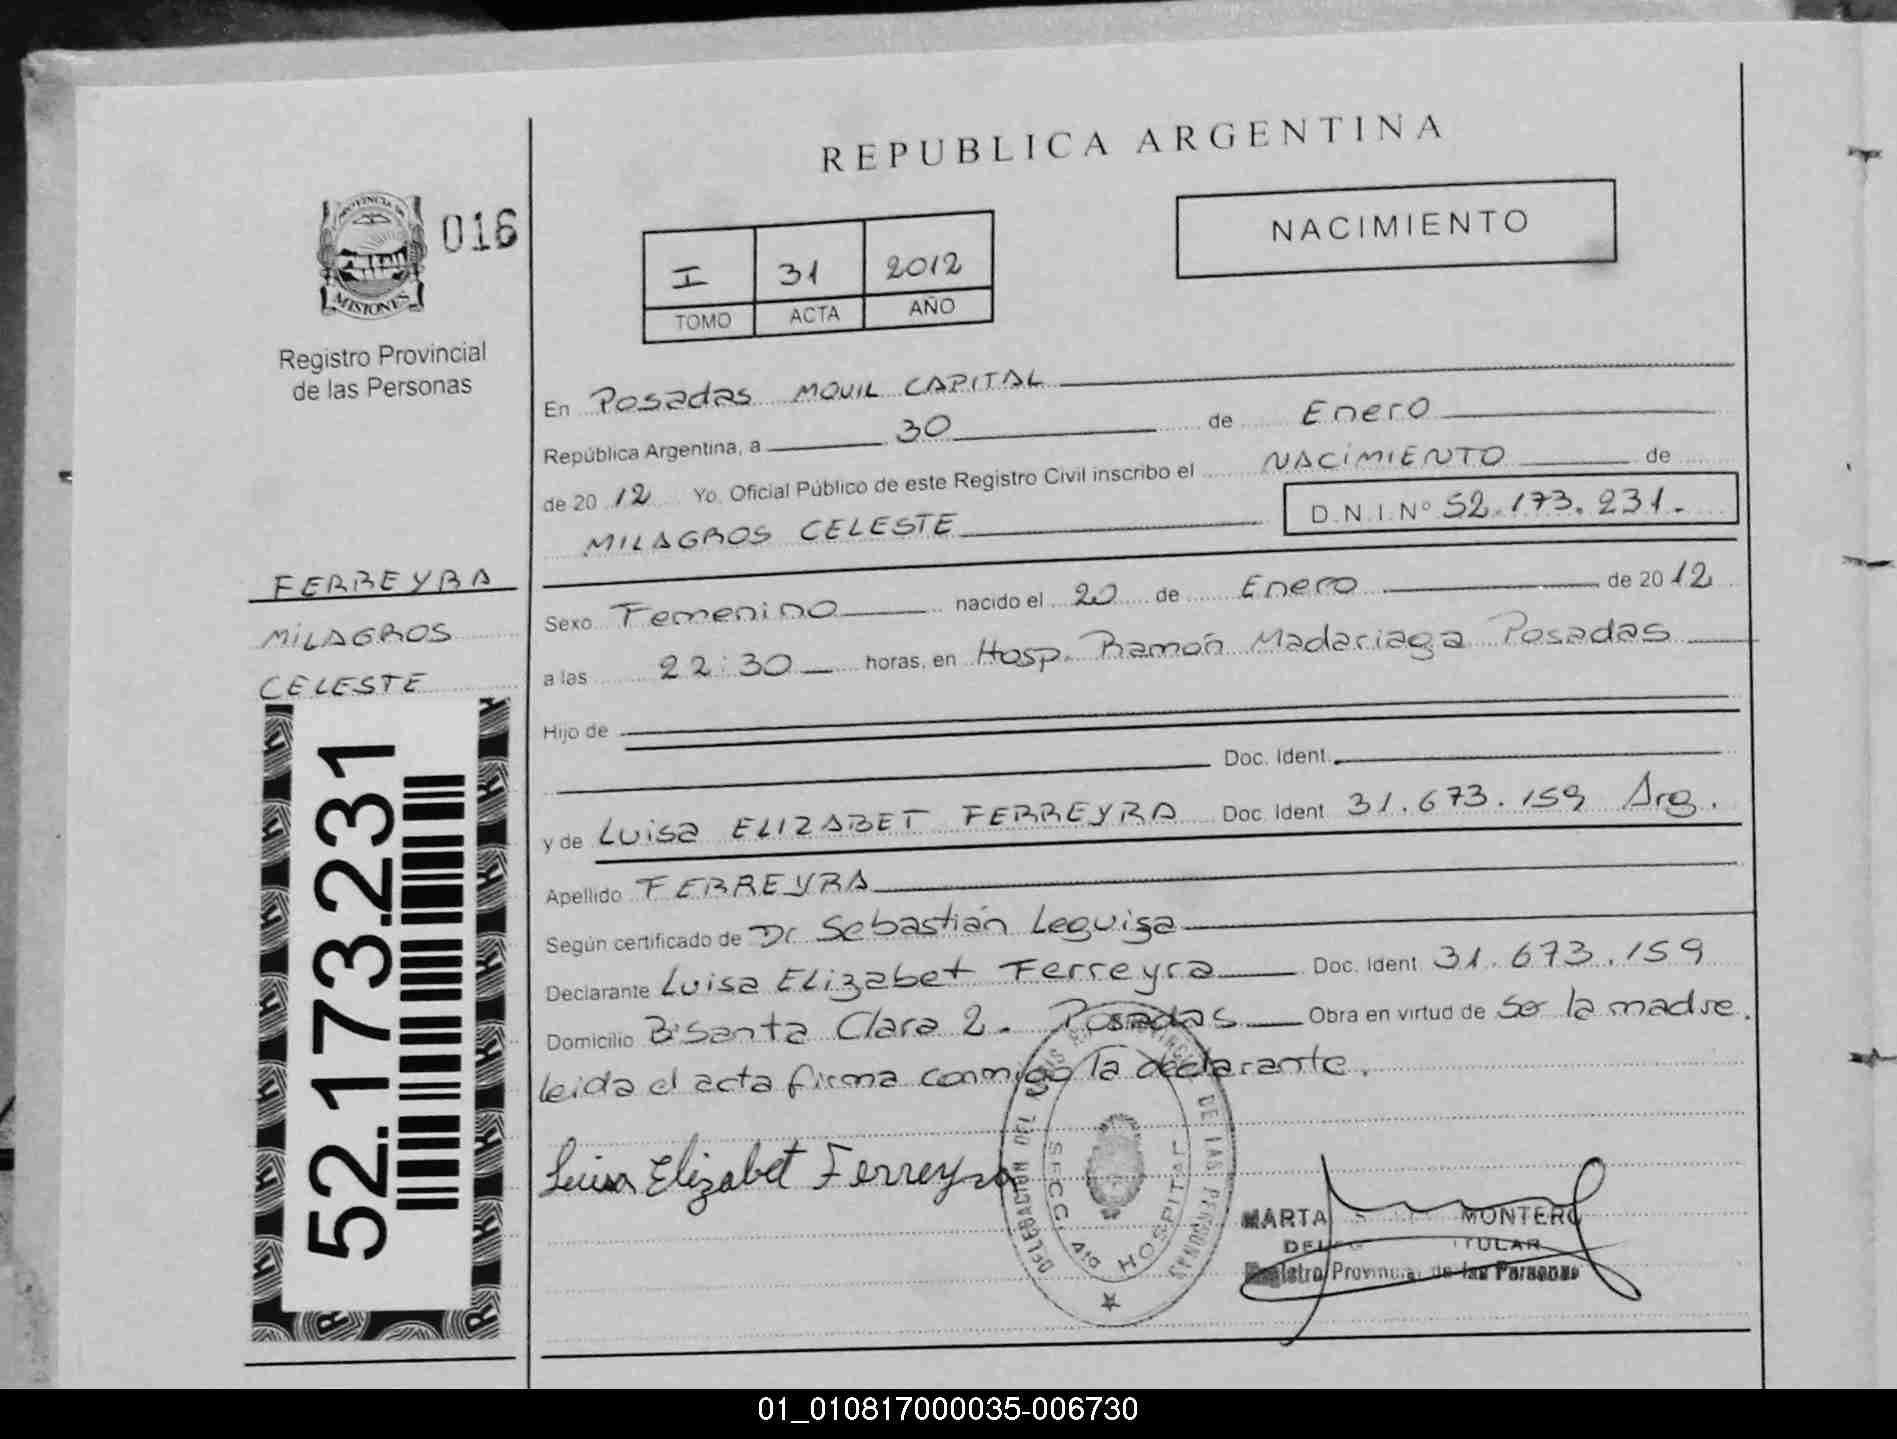 REPUBLICA ARGENTINA
PROVINCIA DE
MISIONES
016
Registro Provincial
de las Personas
I 31 2012
TOMO ACTA AÑO
NACIMIENTO
En Posadas MOVIL CAPITAL
República Argentina, a 30 de Enero
de 20 12 Yo, Oficial Público de este Registro Civil inscribo el NACIMIENTO de
MILAGROS CELESTE D.N.I.Nº 52.173.231.
FERREYRA
MILAGROS
CELESTE
52.173.231
Sexo Femenino nacido el 20 de Enero de 20 12
a las 22:30 horas, en Hosp. Ramón Madariaga Posadas
Hijo de
Doc. Ident.
y de Luisa ELIZABET FERREYRA Doc. Ident 31.673.159 Arg.
Apellido FERREYRA
Según certificado de Dr Sebastián Leguiza
Declarante Luisa Elizabet Ferreyra Doc. Ident 31.673.159
Domicilio Bº Santa Clara 2. Posadas Obra en virtud de ser la madre.
leida el acta firma conmigo la declarante.
Luisa Elizabet Ferreyra
DELEGACION DEL DE LAS PERSONAS
SECC. 4ta HOSPITAL
MARTA MONTERO
TITULAR
Registro Provincial de las Personas
01_010817000035-006730